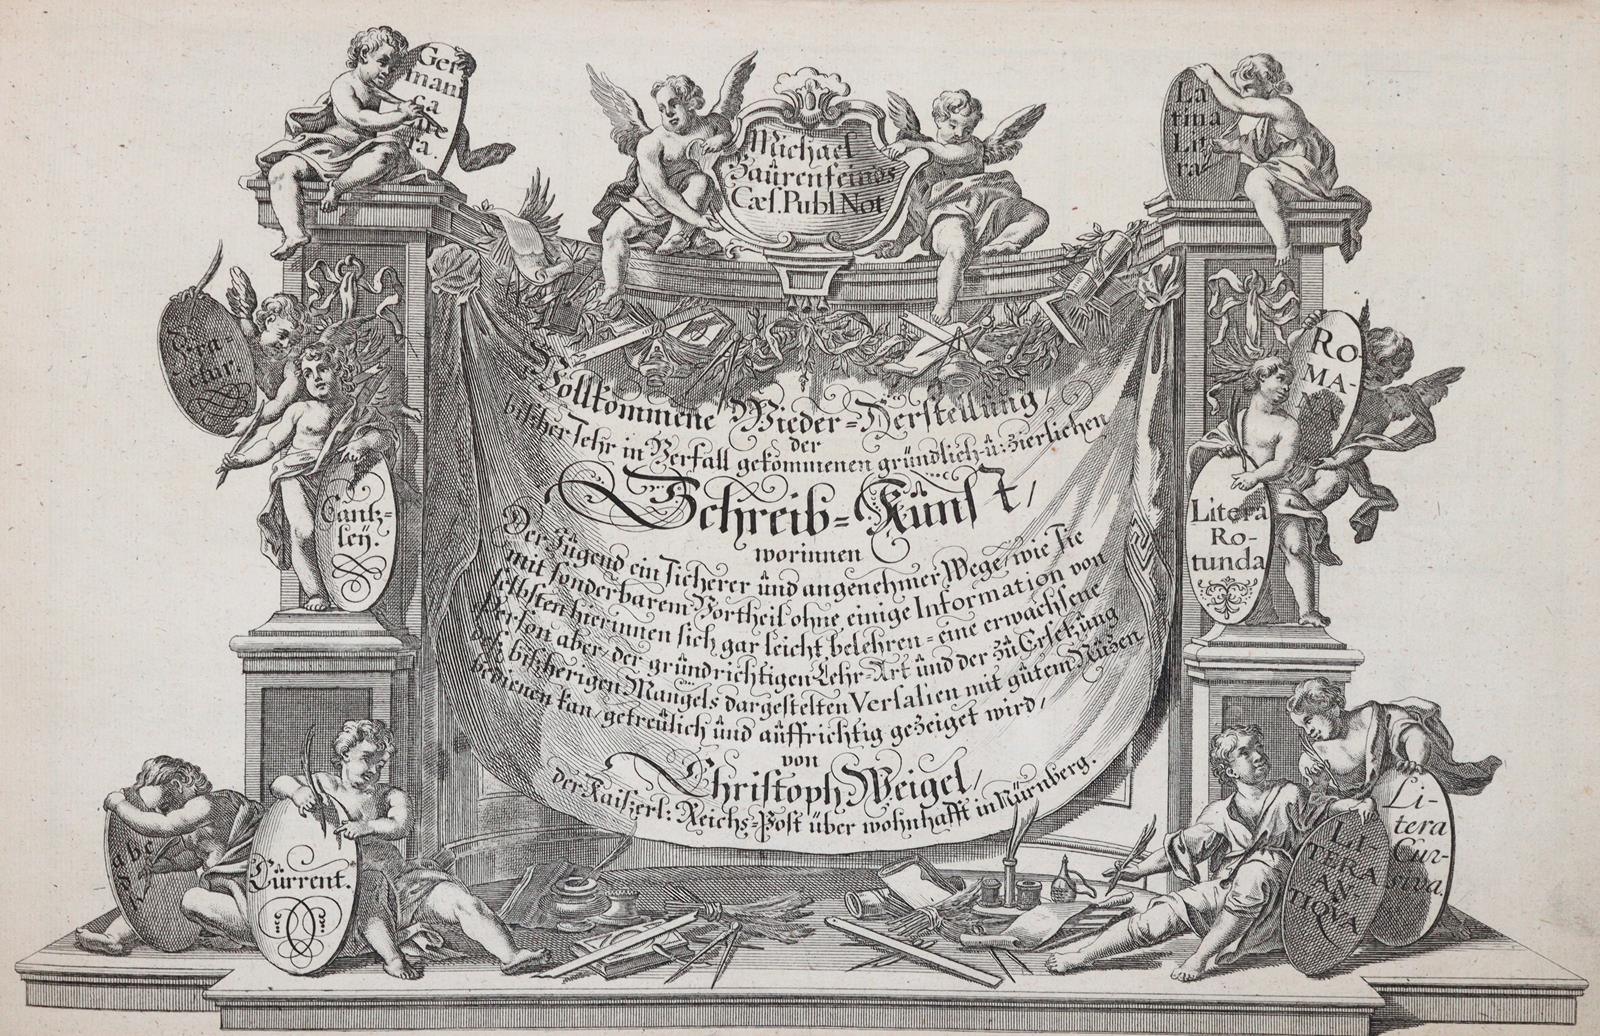 Ger
mani
ca
lite
ra.
Michael
Baürenfeinds
Cæs. Publ Not
La
tina
Lit
ra
Fra-
ctur.
Ro-
MA-
NA
Cantz-
leÿ.
Litera
Ro-
tunda
Vollkommene Wieder-Herstellung /
der
bißher sehr in Verfall gekommenen gründlich- ū: zierlichen
Schreib-Künst /
worinnen
Der Jügend ein sicherer ünd angenehmer Wege / wie sie
mit sonderbarem Vortheil ohne einige Information von
selbsten hierinnen sich gar leicht belehren - eine erwachsene
Person aber / der gründrichtigen Lehr-Art ünd der zü Ersetzüng
deß bißherigen Mangels dargestelten Versalien mit gütem Nüzen
bedienen kan / getreülich ünd aüffrichtig gezeiget wird /
von
Christoph Weigel /
der Kaiserl: Reichs-Post über wohnhafft in Nürnberg.
abc
Cürrent.
LI-
TERA
AN-
TIQVA
Li-
tera
Cur-
siva.